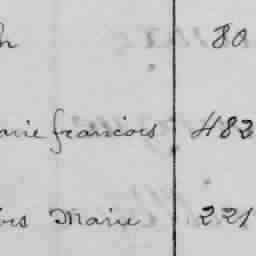 h 80
arie francois 482
ois Marie 221